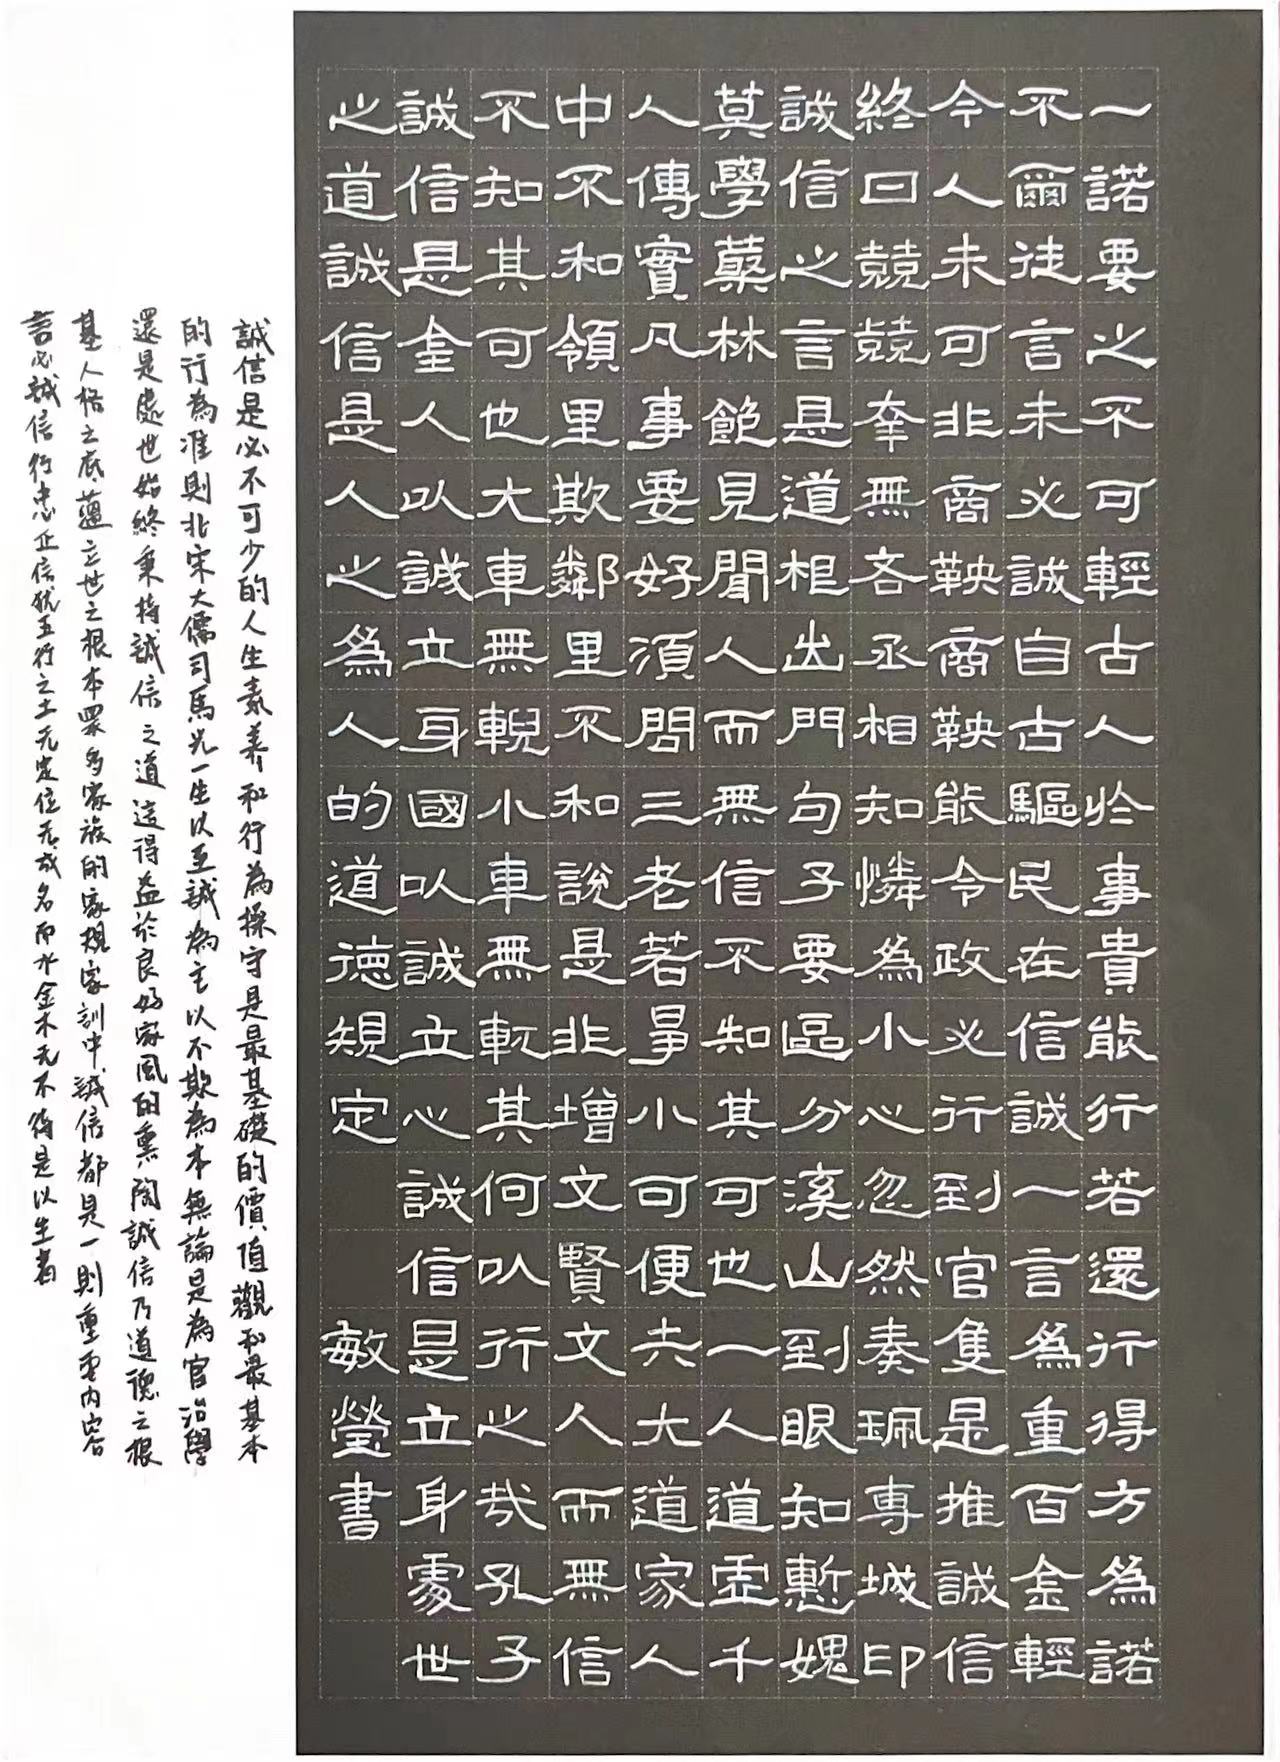 一諾要之不可輕古人於事貴能行若還行得方為諾
不爾徒言未必誠自古驅民在信誠一言為重百金輕
今人未可非商鞅商鞅能令政必行到官隻是推誠信
終日兢兢幸無吝丞相知憐為小心忽然奏珮專城印
誠信之言是道柜出門句子要區分溪山到眼知慙媿
莫學蘗林飽見聞人而無信不知其可也一人道虛千
人傳實凡事要好須問三老若爭小可便失大道家人
中不和領里欺鄰里不和說是非增文賢文人而無信
不知其可也大車無輗小車無軏其何以行之哉孔子
誠信是金人以誠立身國以誠立心誠信是立身處世
之道誠信是人之為人的道德規定
敏瑩書
誠信是必不可少的人生素養和行為操守是最基礎的價值觀和最基本
的行為准則北宋大儒司馬光一生以至誠為主以不欺為本無論是為官治學
還是處世始終秉持誠信之道這得益於良好家風的熏陶誠信乃道德之根
基人格之底蘊立世之根本眾多家族的家規家訓中誠信都是一則重要內容
言必誠信行忠正信猶五行之土无定位无成名而水金木无不待是以生者